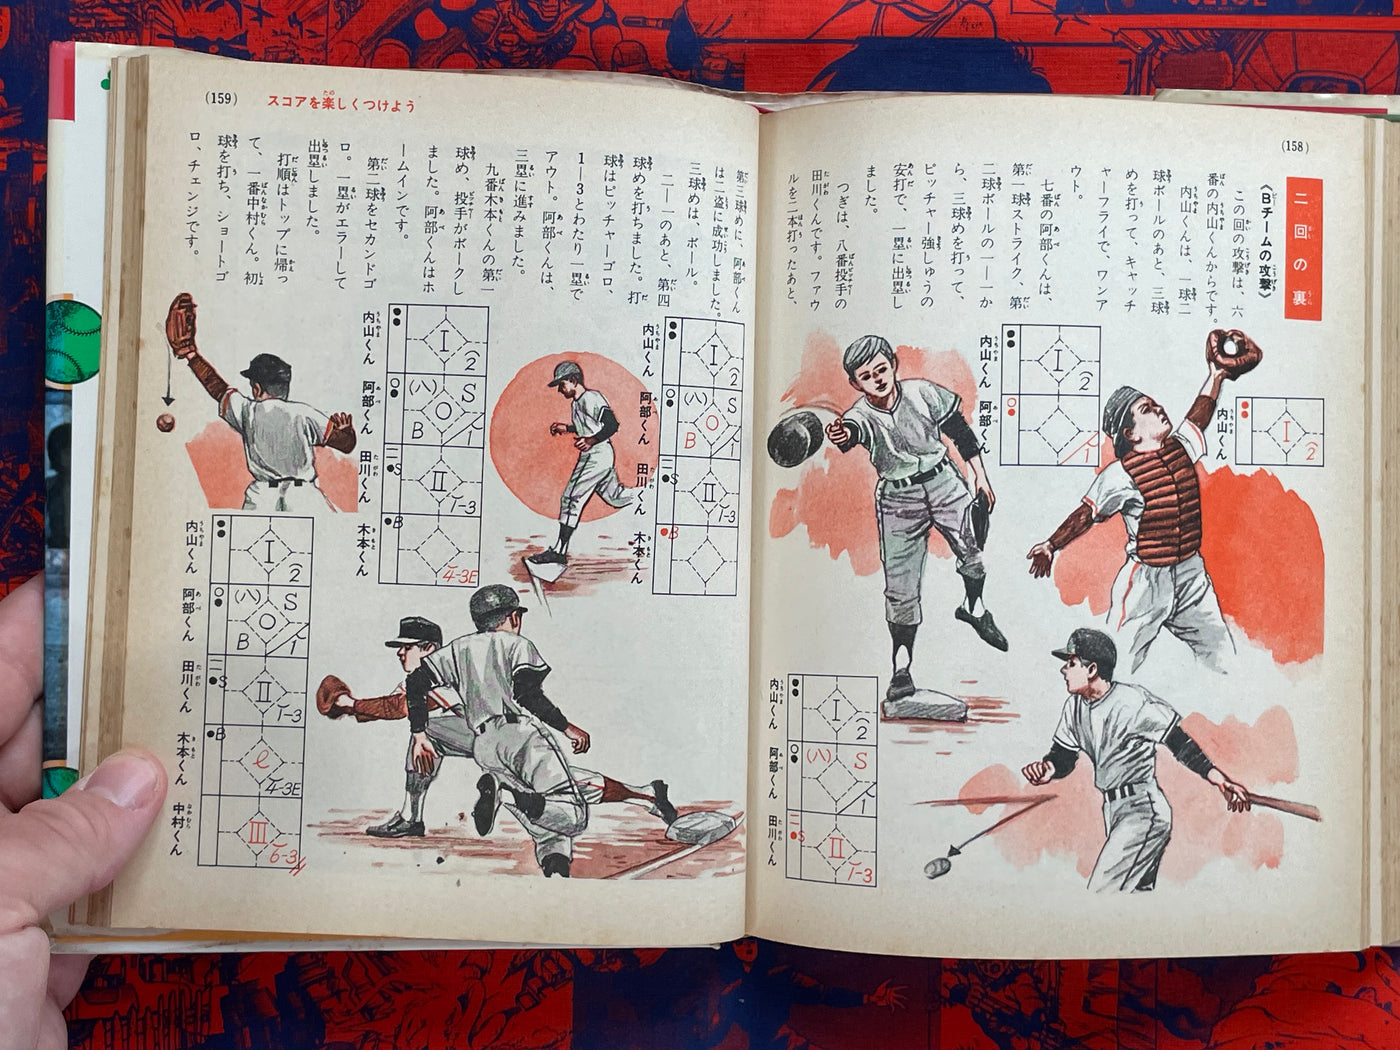 (158)
二回の裏
《Bチームの攻撃》
この回の攻撃は、六
番の内山くんからです。
内山くんは、一球二
球ボールのあと、三球
めを打って、キャッチ
ャーフライで、ワンア
ウト。
七番の阿部くんは、
第一球ストライク、第
二球ボールの一―一か
ら、三球めを打って、
ピッチャー強しゅうの
安打で、一塁に出塁し
ました。
つぎは、八番投手の
田川くんです。ファウ
ルを二本打ったあと、
内山くん
I
2
内山くん
阿部くん
I
2
1
内山くん
阿部くん
田川くん
I
2
(八)
S
1
S
II
1-3
(159)
スコアを楽しくつけよう
第三球めに、阿部くん
は二盗に成功しました。
三球めは、ボール。
二―一のあと、第四
球めを打ちました。打
球はピッチャーゴロ、
1―3とわたり一塁で
アウト。阿部くんは、
三塁に進みました。
九番木本くんの第一
球め、投手がボークし
ました。阿部くんはホ
ームインです。
第二球をセカンドゴ
ロ。一塁がエラーして
出塁しました。
打順はトップに帰っ
て、一番中村くん。初
球を打ち、ショートゴ
ロ、チェンジです。
内山くん
阿部くん
田川くん
木本くん
I
2
(八)
S
B
1
S
II
1-3
B
内山くん
阿部くん
田川くん
木本くん
I
2
(八)
S
B
1
S
II
1-3
B
4-3E
内山くん
阿部くん
田川くん
木本くん
中村くん
I
2
(八)
S
B
1
S
II
1-3
B
e
4-3E
III
6-3